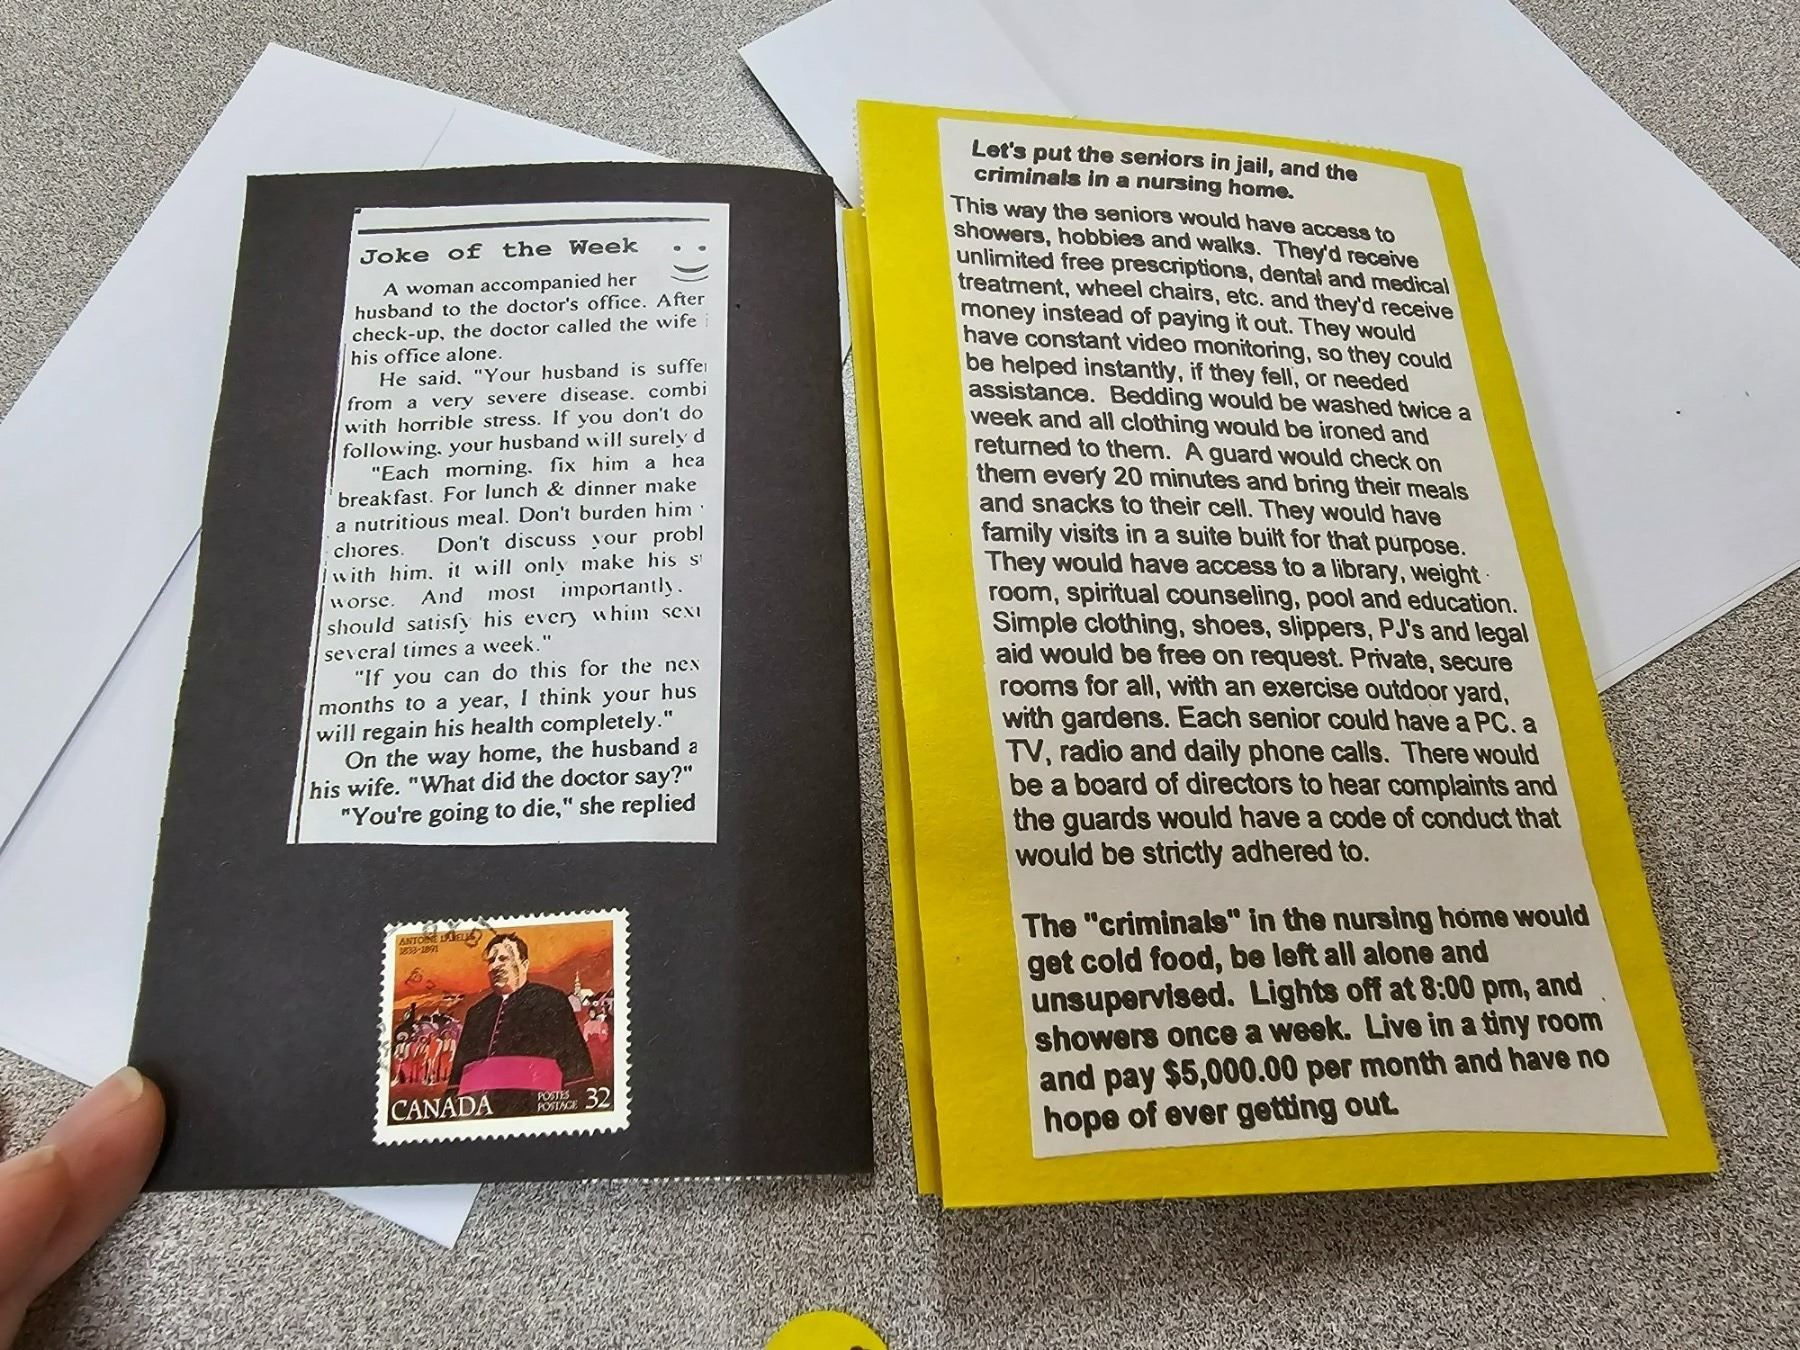 Joke of the Week
A woman accompanied her
husband to the doctor's office. After
check-up, the doctor called the wife
his office alone.
He said, "Your husband is suffe
from a very severe disease. combi
with horrible stress. If you don't do
following, your husband will surely d
"Each morning, fix him a hea
breakfast. For lunch & dinner make
a nutritious meal. Don't burden him
chores. Don't discuss your probl
with him, it will only make his s
worse. And most importantly,
should satisfy his every whim sexu
several times a week."
"If you can do this for the nex
months to a year, I think your hus
will regain his health completely."
On the way home, the husband a
his wife. "What did the doctor say?"
"You're going to die," she replied
ANTOINE LABELLE
1833-1891
CANADA
POSTES
POSTAGE 32
Let's put the seniors in jail, and the
criminals in a nursing home.
This way the seniors would have access to
showers, hobbies and walks. They'd receive
unlimited free prescriptions, dental and medical
treatment, wheel chairs, etc. and they'd receive
money instead of paying it out. They would
have constant video monitoring, so they could
be helped instantly, if they fell, or needed
assistance. Bedding would be washed twice a
week and all clothing would be ironed and
returned to them. A guard would check on
them every 20 minutes and bring their meals
and snacks to their cell. They would have
family visits in a suite built for that purpose.
They would have access to a library, weight
room, spiritual counseling, pool and education.
Simple clothing, shoes, slippers, PJ's and legal
aid would be free on request. Private, secure
rooms for all, with an exercise outdoor yard,
with gardens. Each senior could have a PC. a
TV, radio and daily phone calls. There would
be a board of directors to hear complaints and
the guards would have a code of conduct that
would be strictly adhered to.
The "criminals" in the nursing home would
get cold food, be left all alone and
unsupervised. Lights off at 8:00 pm, and
showers once a week. Live in a tiny room
and pay $5,000.00 per month and have no
hope of ever getting out.